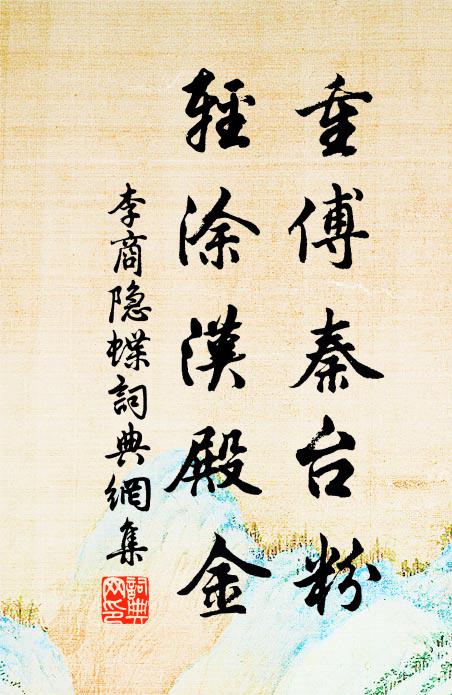 重傅秦台粉
轻涂漢殿金
李商隐蝶詞典網集
詞典网印